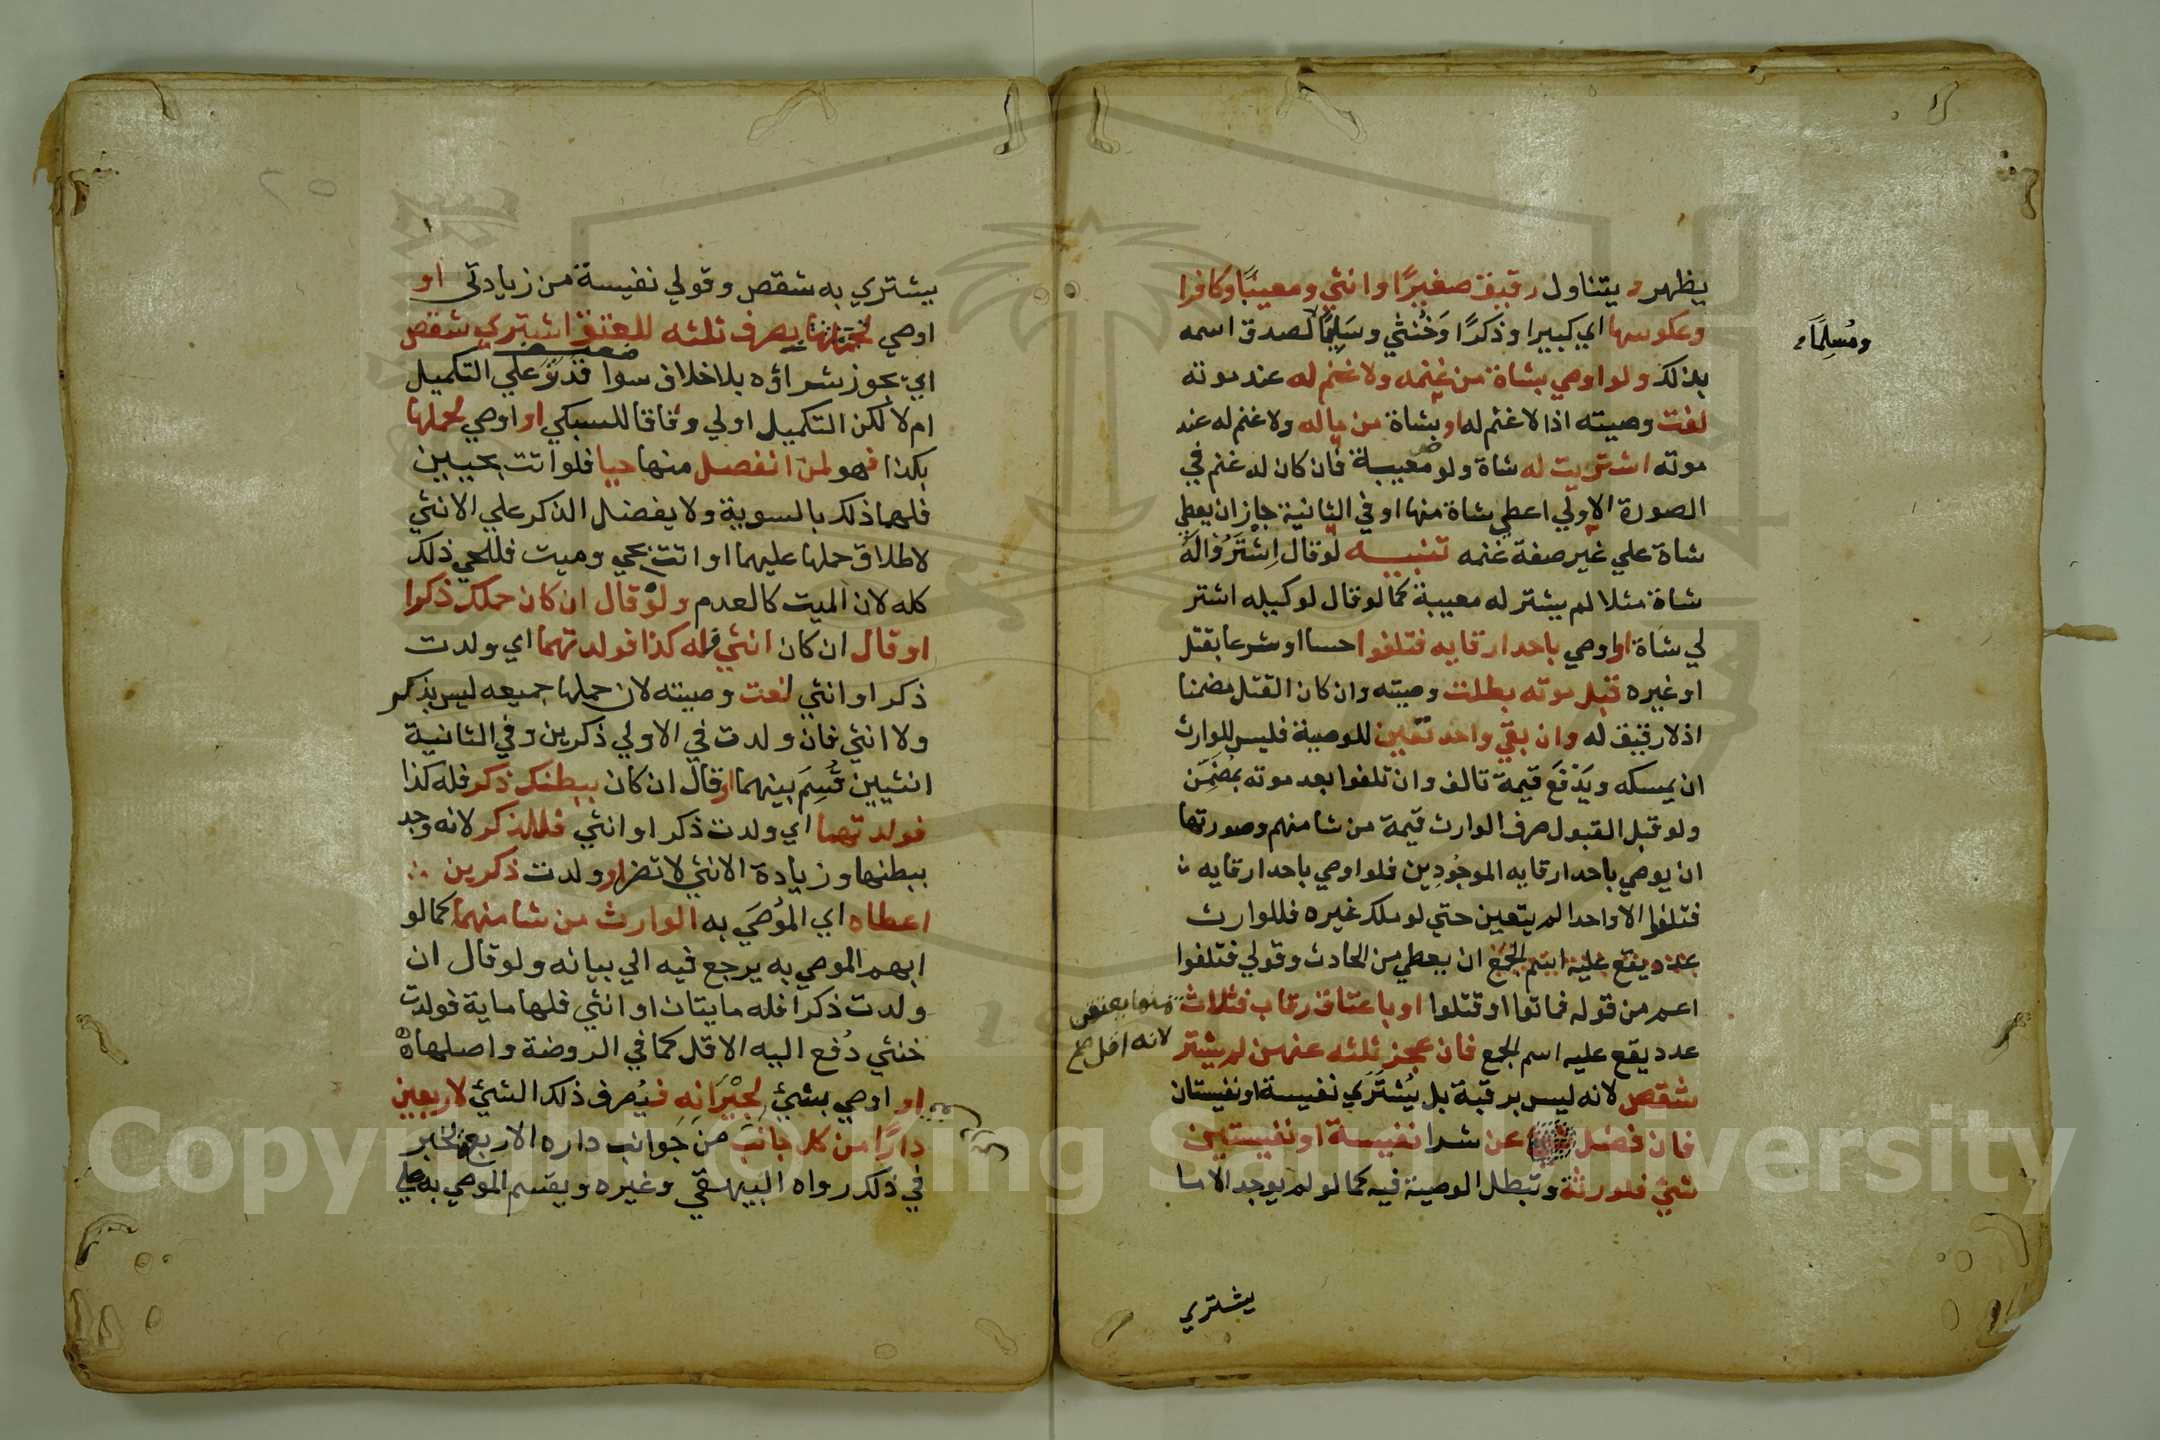 يظهر و يتناول رقيق صغيرًا وانثي ومعيبًا وكافرا
وعكوسها اي كبيرا وذكرًا وَخُنثي وسَلِيمًا لصدق اسمه
ومُسلِمًا
بذلك ولو اوصي بشاة من غنمه ولا غنم له عند موته
لغت وصيته اذ لا غنم له او بشاة من ماله ولا غنم له عند
موته اشتريت له شاة ولو معيبة فان كان له غنم في
الصورة الاولي اعطي شاة منها او في الثانية جاز ان يعطي
شاة علي غير صفة غنمه تنبيه لو قال اِشْتَرُوْا لَهُ
شاة مثلا لم يشتر له معيبة كما لو قال لوكيله اشتر
لي شاة او اوصي باحد ارقايه فتلفوا حسا او شرعا بقتل
او غيره قبل موته بطلت وصيته وان كان القتل مضمنا
اذ لا رقيق له وان بقي واحد تعين للوصية فليس للوارث
ان يمسكه ويَدْفَعَ قيمة تالف وان تلفوا بعد موته بمُضَمِّن
ولو قبل القبول صرف الوارث قيمة من شا منهم وصورتها
ان يوصي باحد ارقايه الموجُودِين فلو اوصي باحد ارقايه
فتلفوا الا واحدا لم يتعين حتي لو ملك غيره فللوارث
ان يعطي من الحادث وقولي فتلفوا
اعم من قوله فماتوا او قتلوا او باعتاق رقاب فثلاث
لانه اقل
عدد يقع عليه اسم الجمع فان عجز ثلثه عنهن لم يشتر
شقص لانه ليس برقبة بل يُشتَرَي نفيسة او نفيستان
فان فضل عن شرا نفيسة او نفيستين
شئ فلورثة وتبطل الوصية فيه كما لو لم يوجد الا ما
يشتري
يشتري به شقص وقولي نفيسة من زيادتي او
اوصي بصرف ثلثه للعتق اشتري شقص
اي يجوز شراؤه بلا خلاف سوا قدرَ علي التكميل
ام لا لكن التكميل اولي وفاقا للسبكي او اوصي لحملها
بكذا فهو لمن انفصل منها حيا فلو اتت بحيين
فلهما ذلك بالسوية ولا يفضل الذكر علي الانثي
لاطلاق حملها عليهما او اتت بحي وميت فللحي ذلك
كله لان الميت كالعدم ولو قال ان كان حملك ذكرا
او قال ان كان انثي فله كذا فولدتهما اي ولدت
ذكرا وانثي لغت وصيته لان حملها جميعه ليس بذكر
ولا انثي فان ولدت في الاولي ذكرين وفي الثانية
انثيين قُسِمَ بينهما او قال ان كان ببطنك ذكر فله كذا
فولدتهما اي ولدت ذكرا وانثي فللذكر لانه وجد
ببطنها وزيادة الانثي لا تضر او ولدت ذكرين
اعطاه اي المُوصَي به الوارث من شا منهما كما لو
ابهم الموصي به يرجع فيه الي بيانه ولو قال ان
ولدت ذكرا فله مايتان او انثي فلها ماية فولدت
خنثي دُفع اليه الاقل كما في الروضة واصلها
او اوصي بشئ لِجْيِرَانِهِ فيُصرف ذلك الشئ لاربعين
دارًا من كل جانب من جوانب داره الاربع لخبر
في ذلك رواه البيهقي وغيره ويقسم الموصي به علي
Copyright © King Saud University